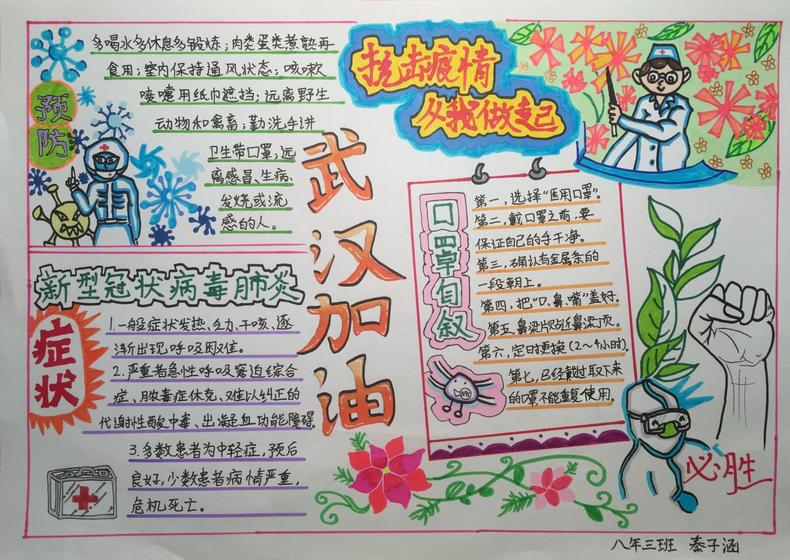 抗击疫情
从我做起
预防
多喝水多休息多锻炼;肉类蛋类煮熟再
食用;室内保持通风状态;咳嗽
喷嚏用纸巾遮挡;远离野生
动物和禽畜;勤洗手讲
卫生带口罩,远
离感冒、生病,
发烧,或流
感的人。
武汉加油
新型冠状病毒肺炎
症状
1.一般症状发热、乏力、干咳、逐
渐出现呼吸困难。
2.严重者急性呼吸窘迫综合
症、脓毒症休克、难以纠正的
代谢性酸中毒、出凝血功能障碍
3.多数患者为中轻症,预后
良好,少数患者病情严重,
危机死亡。
口罩自叙
第一,选择“医用口罩”。
第二,戴口罩之前,要
保证自己的手干净。
第三,确认有金属条的
一段朝上。
第四,把“口、鼻、嘴”盖好。
第五,鼻梁片贴近鼻梁顶。
第六,定时更换(2~4小时).
第七,已经戴过取下来
的口罩不能重复使用。
必胜
八年三班 秦子涵